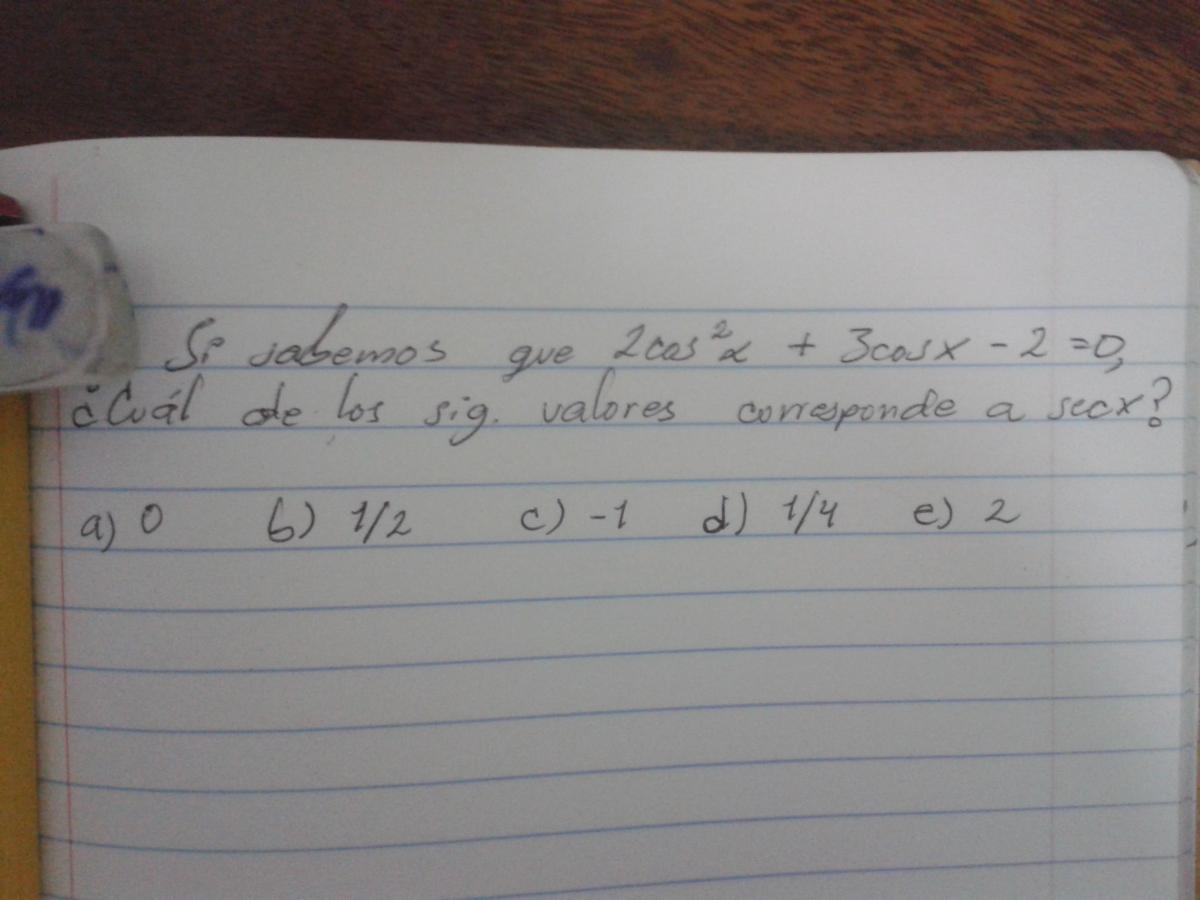 Si sabemos que 2cos²x + 3cosx - 2 = 0,
¿Cuál de los sig. valores corresponde a secx?
a) 0 b) 1/2 c) -1 d) 1/4 e) 2